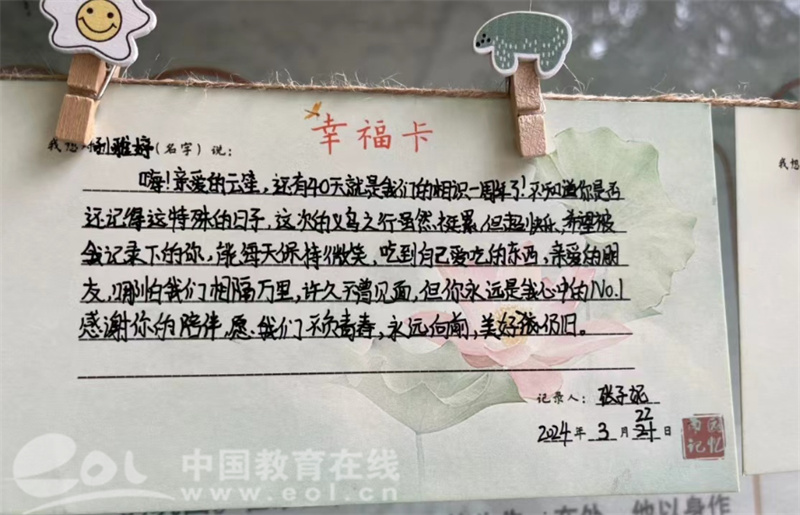 幸福卡
我想对刘雅婷(名字)说:
嗨!亲爱的云笙,还有40天就是我们的相识一周年了!不知道你是否
还记得这特殊的日子,这次的义乌之行虽然挺累,但超快乐,希望被
我记录下的你,能每天保持微笑,吃到自己爱吃的东西,亲爱的朋
友,哪怕我们相隔万里,许久不曾见面,但你永远是我心中的No.1
感谢你的陪伴,愿我们不负青春,永远向前,美好依仍旧。
记录人:张子妮
22
2024年3月21日
记忆
eol 中国教育在线
www.eol.cn
他以身作